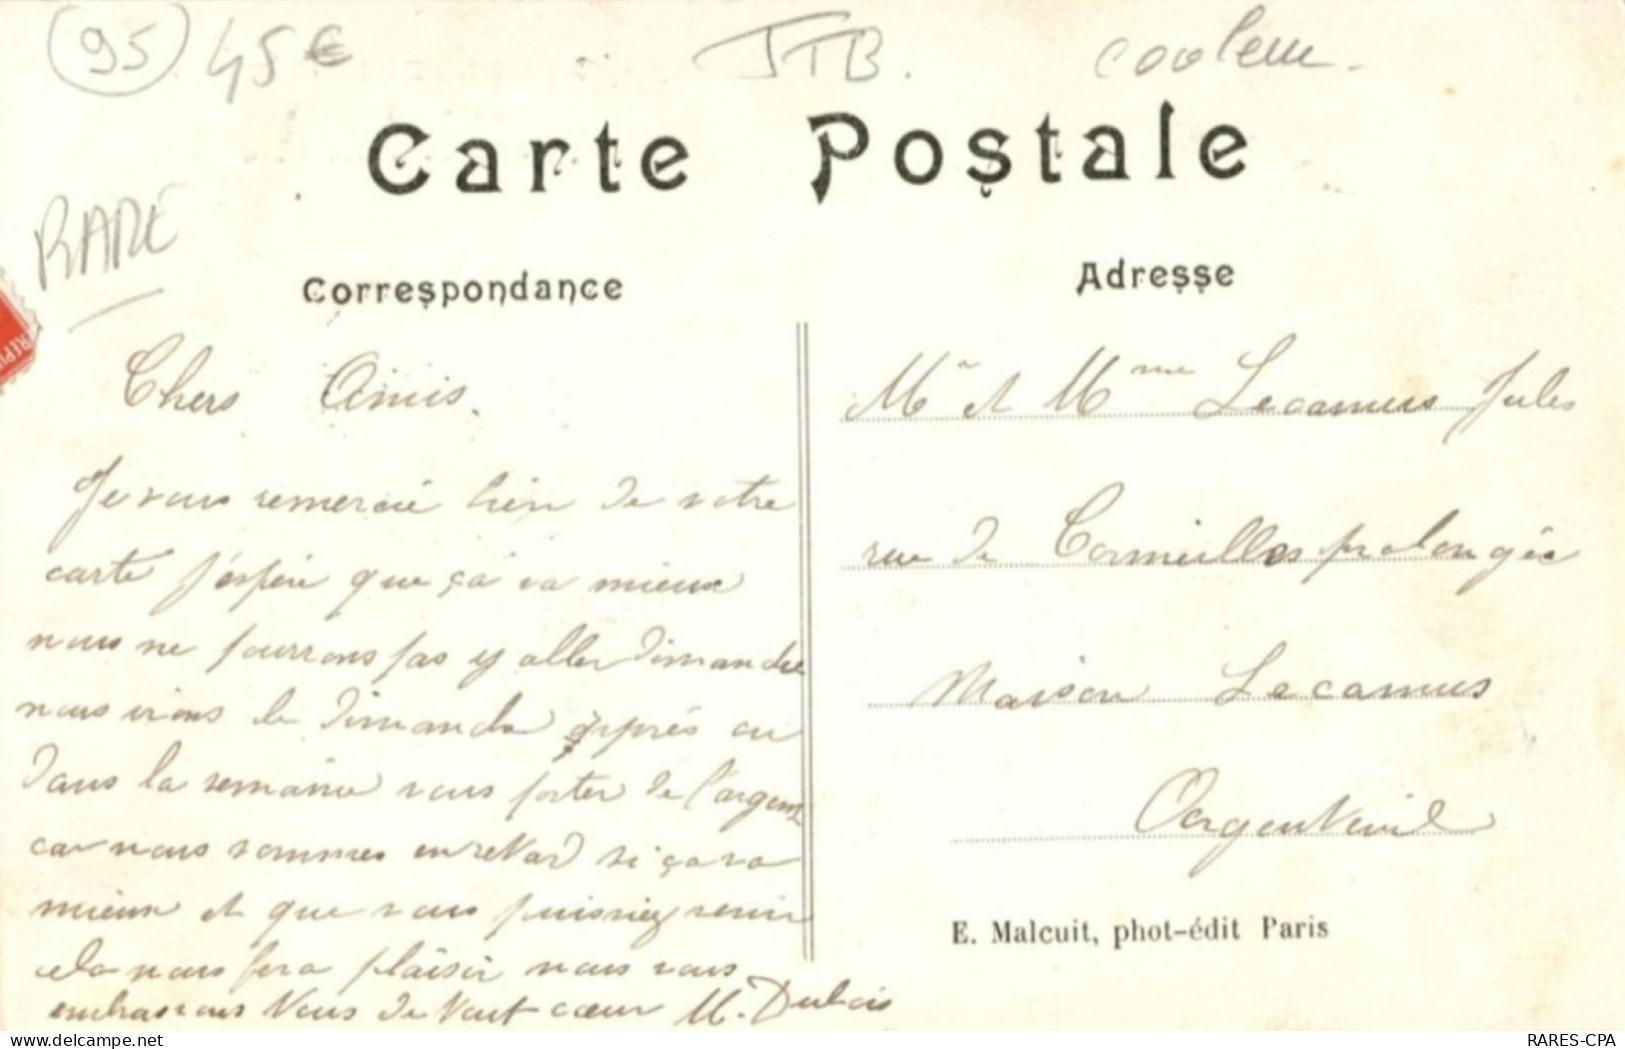 95 45€ JTB. couleur.
Carte Postale
RARE
Correspondance
Chers Amis.
Je vous remercie bien de votre
carte j'espère que ça va mieux
nous ne pourrons pas y aller dimanche
nous irons le dimanche apprés ou
dans la semaine vous porter de l'argent
car nous sommes en retard si ça va
mieux et que vous puissiez venir
cela nous fera plaisir nous vous
embrassons tous de tout cœur M. Dubois
Adresse
Mr et Mme Lecamus Jules
rue de Cormeilles prolongée
Maison Lecamus
Argenteuil
E. Malcuit, phot-édit Paris
delcampe.net
RARES-CPA